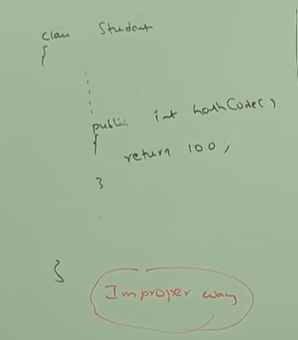 class Student
{
public int hashCode()
{
return 100;
}
}
Improper way